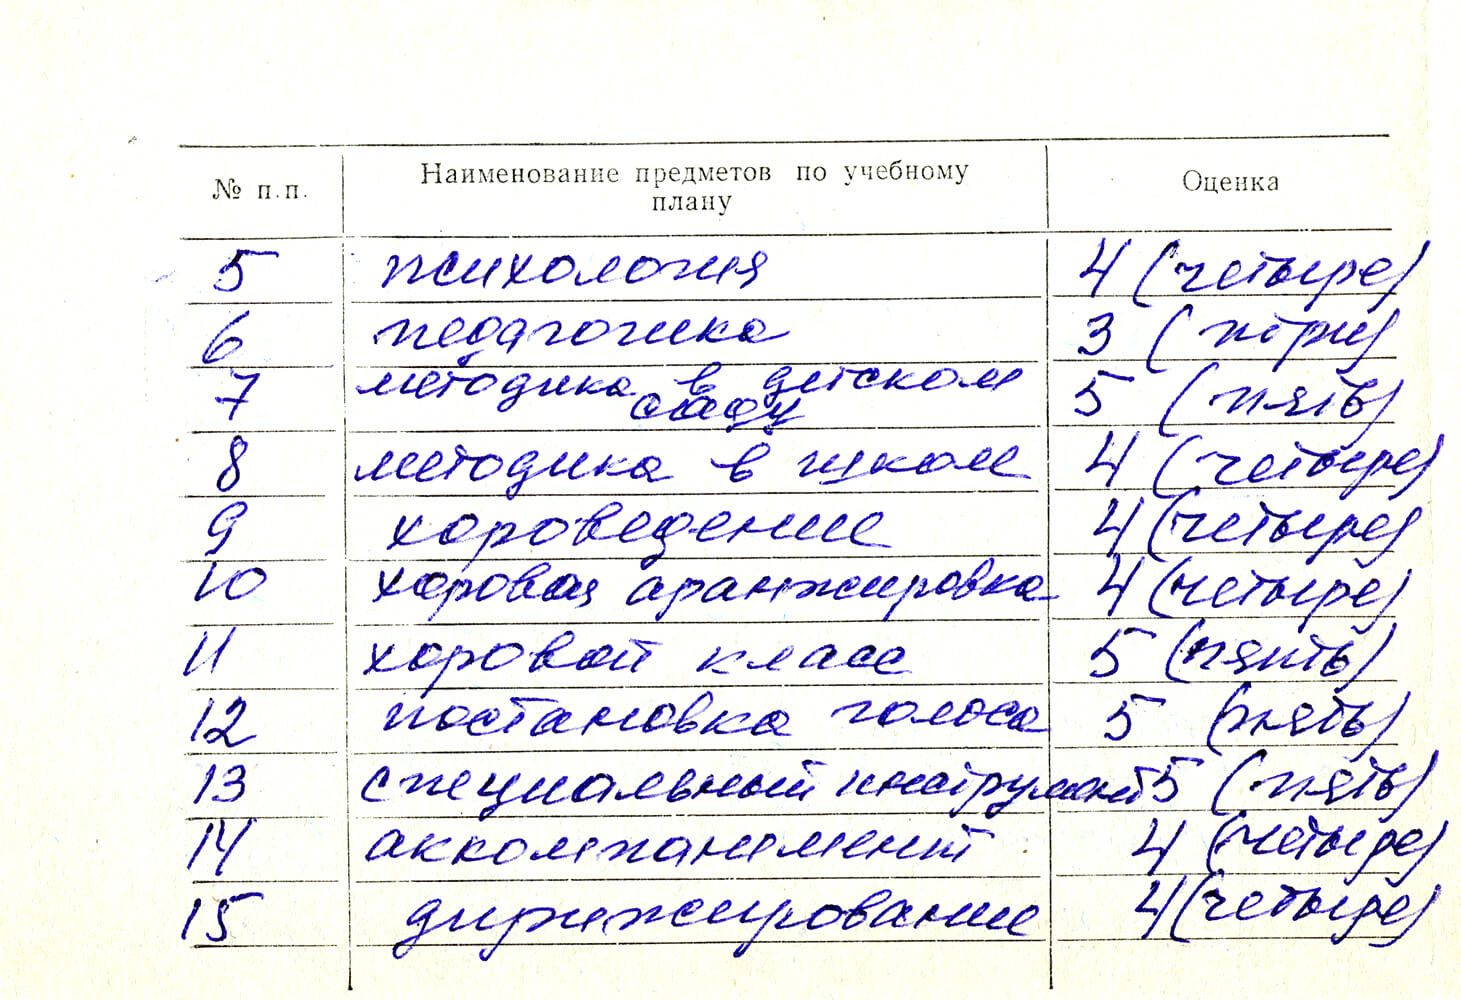 № п.п. Наименование предметов по учебному плану Оценка
5 психология 4 (четыре)
6 педагогика 3 (три)
7 методика в детском саду 5 (пять)
8 методика в школе 4 (четыре)
9 хороведение 4 (четыре)
10 хоровая аранжировка 4 (четыре)
11 хоровой класс 5 (пять)
12 постановка голоса 5 (пять)
13 специальный инструмент 5 (пять)
14 аккомпанимент 4 (четыре)
15 дирижирование 4 (четыре)